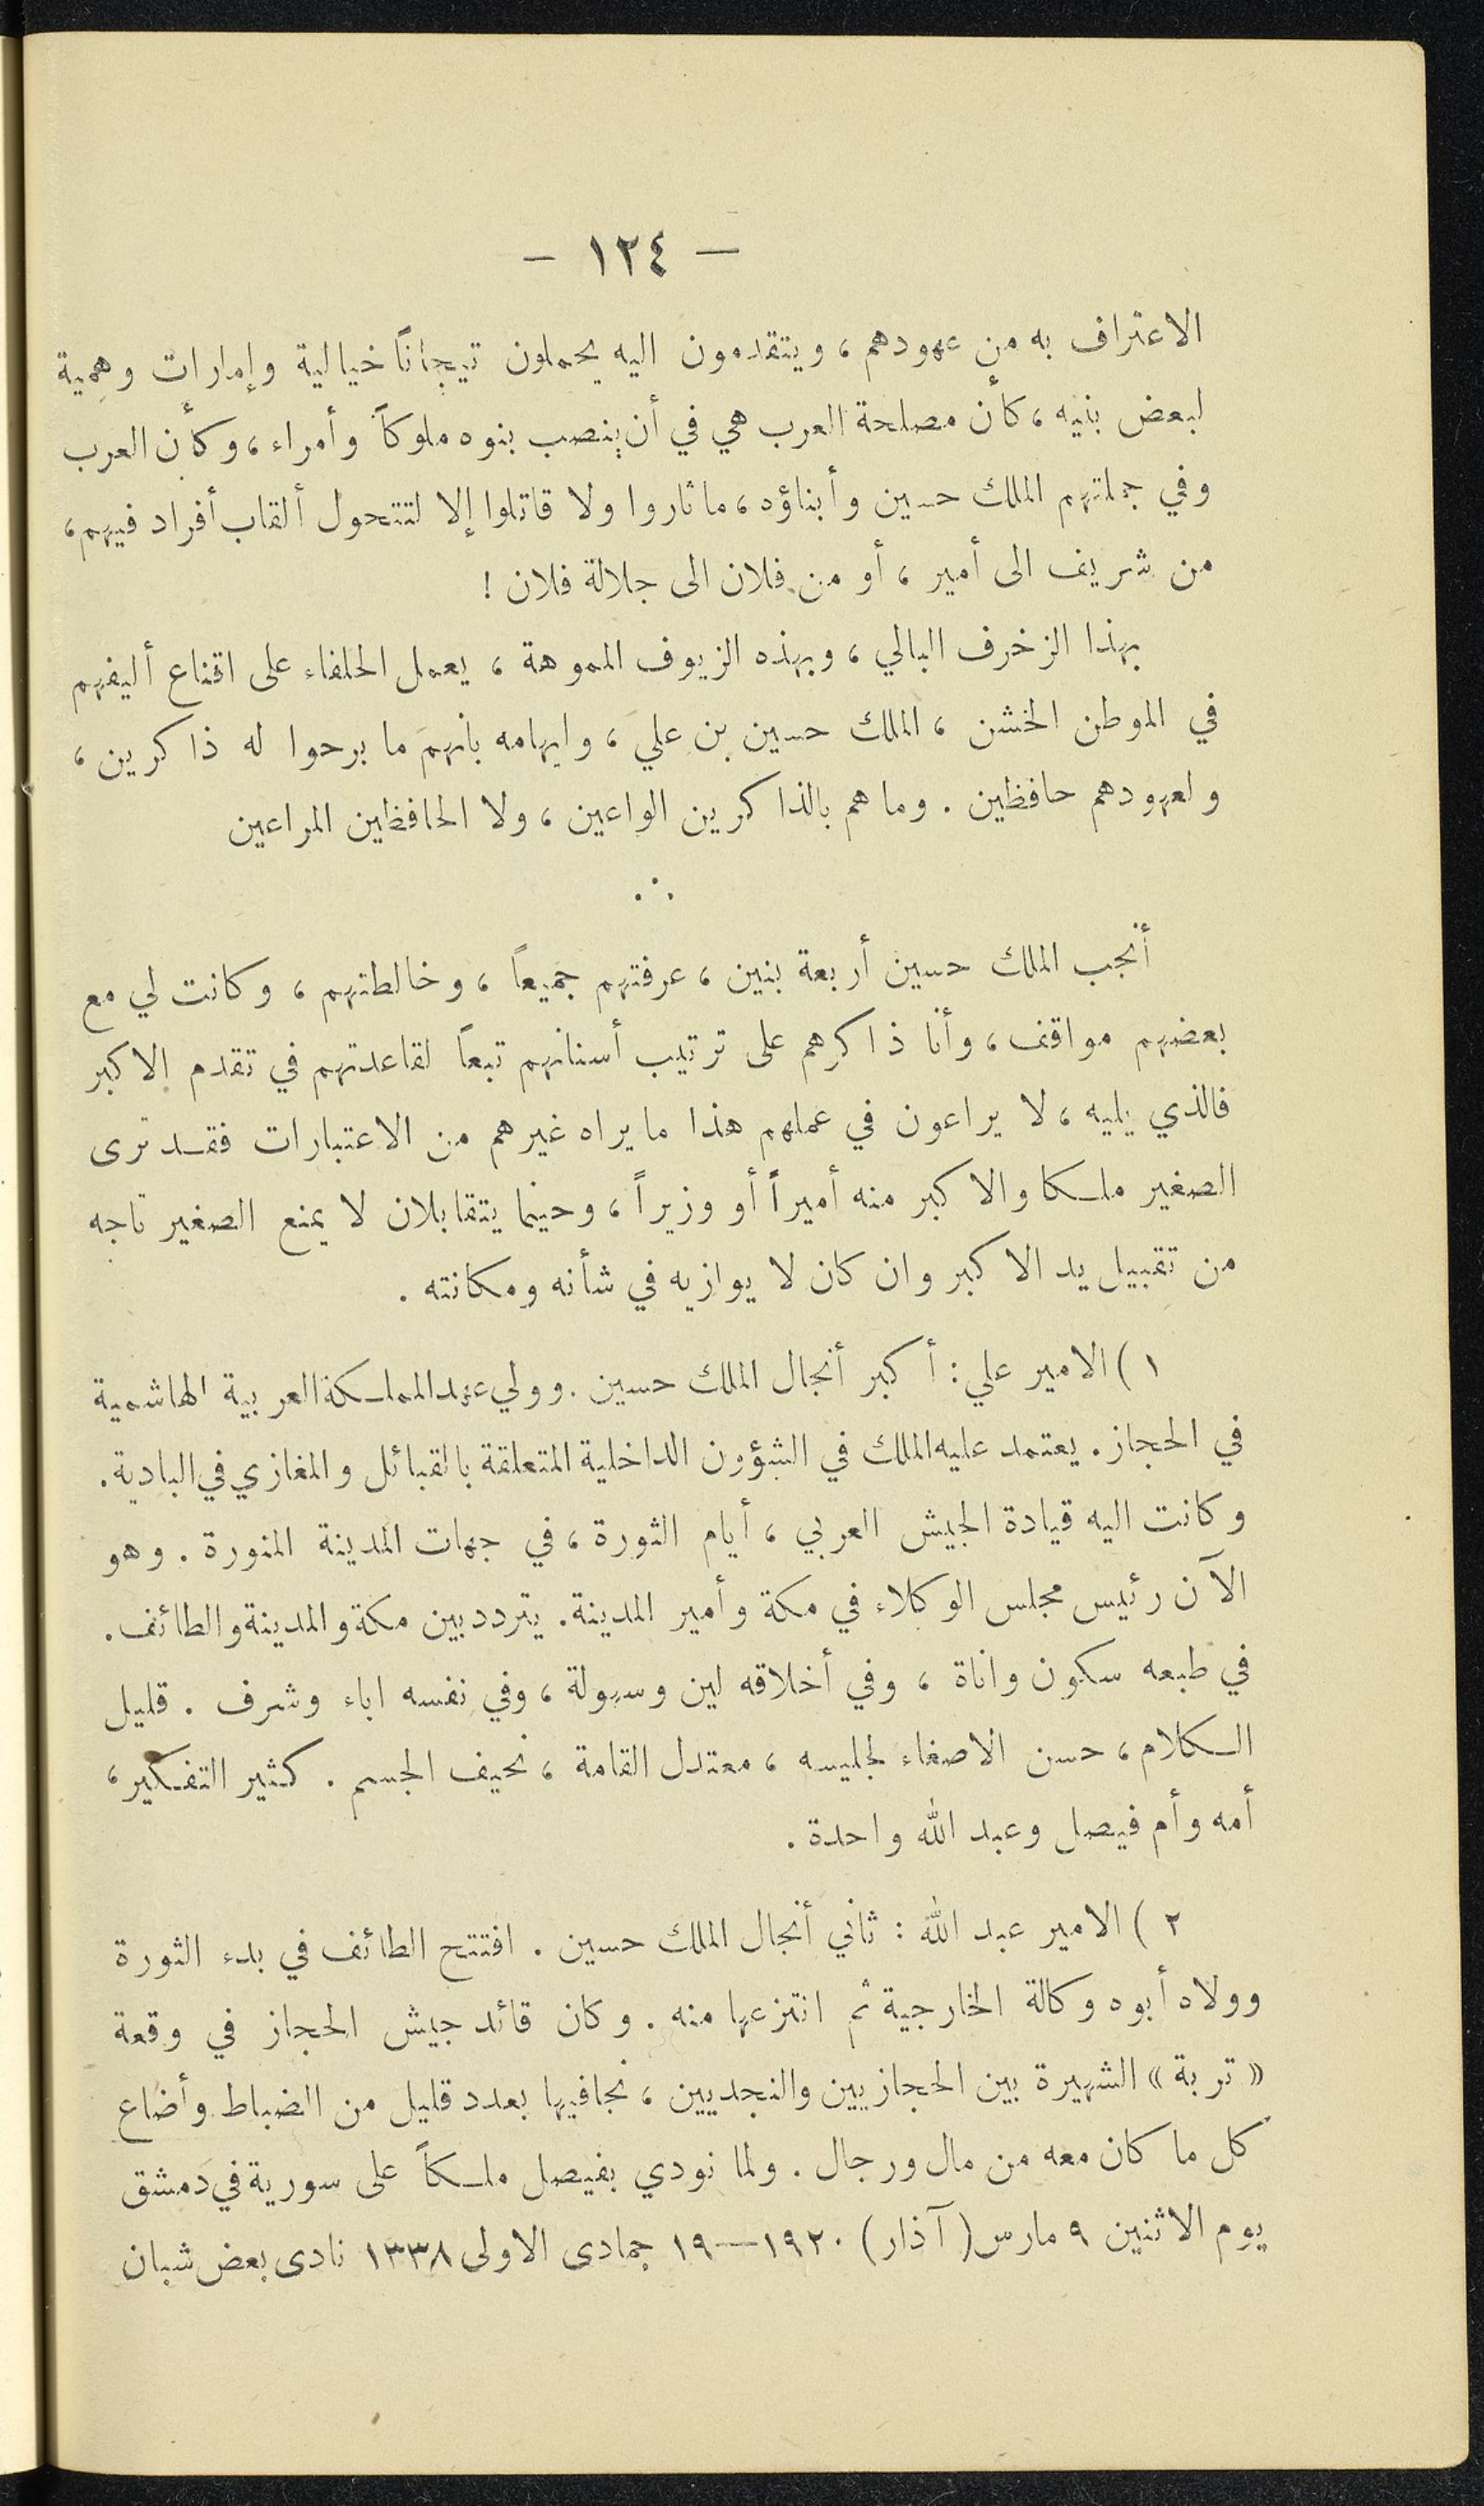 — ١٢٤ —
الاعتراف به من عهودهم ، ويتقدمون اليه يحملون تيجاناً خيالية وإمارات وهمية
لبعض بنيه ، كأن مصلحة العرب هي في أن ينصب بنوه ملوكاً وأمراء ، وكأن العرب
وفي جملتهم الملك حسين وأبناؤه ، ما ثاروا ولا قاتلوا إلا لتتحول ألقاب أفراد فيهم ،
من شريف الى أمير ، أو من فلان الى جلالة فلان !
بهذا الزخرف البالي ، وبهذه الزيوف المموهة ، يعمل الحلفاء على اقناع أليفهم
في الموطن الخشن ، الملك حسين بن علي ، وايهامه بانهم ما برحوا له ذاكرين ،
ولعهودهم حافظين . وما هم بالذاكرين الواعين ، ولا الحافظين المراعين
∴
أنجب الملك حسين أربعة بنين ، عرفتهم جميعاً ، وخالطتهم ، وكانت لي مع
بعضهم مواقف ، وأنا ذاكرهم على ترتيب أسنانهم تبعاً لقاعدتهم في تقدم الاكبر
فالذي يليه ، لا يراعون في عملهم هذا ما يراه غيرهم من الاعتبارات فقد ترى
الصغير ملكا والاكبر منه أميراً أو وزيراً ، وحينما يتقابلان لا يمنع الصغير تاجه
من تقبيل يد الاكبر وان كان لا يوازيه في شأنه ومكانته .
١ ) الامير علي : أكبر أنجال الملك حسين . وولي عهد المملكة العربية الهاشمية
في الحجاز . يعتمد عليه الملك في الشؤون الداخلية المتعلقة بالقبائل والمغازي في البادية .
وكانت اليه قيادة الجيش العربي ، أيام الثورة ، في جهات المدينة المنورة . وهو
الآن رئيس مجلس الوكلاء في مكة وأمير المدينة . يتردد بين مكة والمدينة والطائف .
في طبعه سكون واناة ، وفي أخلاقه لين وسهولة ، وفي نفسه اباء وشرف . قليل
الكلام ، حسن الاصغاء لجليسه ، معتدل القامة ، نحيف الجسم . كثير التفكير ،
أمه وأم فيصل وعبد الله واحدة .
٢ ) الامير عبد الله : ثاني أنجال الملك حسين . افتتح الطائف في بدء الثورة
وولاه أبوه وكالة الخارجية ثم انتزعها منه . وكان قائد جيش الحجاز في وقعة
« تربة » الشهيرة بين الحجازيين والنجديين ، نجا فيها بعدد قليل من الضباط وأضاع
كل ما كان معه من مال ورجال . ولما نودي بفيصل ملكاً على سورية في دمشق
يوم الاثنين ٩ مارس ( آذار ) ١٩٢٠—١٩ جمادى الاولى ١٣٣٨ نادى بعض شبان